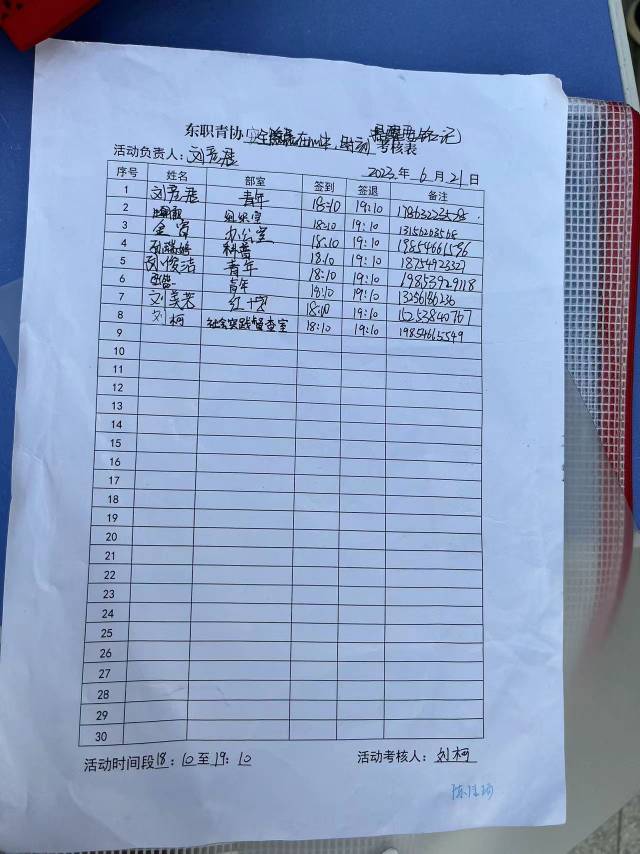 东职青协 安全 在心中,时刻 提醒要铭记 考核表
活动负责人: 刘彦君 2023 年 6 月 21 日
序号 姓名 部室 签到 签退 备注
1 刘彦君 青年 18:10 19:10
2 组织室 18:10 19:10
3 金 办公室 18:10 19:10
4 科普 18:10 19:10 19854661596
5 刘俊洁 青年 18:10 19:10 18754923327
6 青年 18:10 19:10 19853929118
7 刘 红十字 18:10 19:10
8 刘柯 社会实践督查室 18:10 19:10 15253840767
9 18:10 19:10 19854615549
10
11
12
13
14
15
16
17
18
19
20
21
22
23
24
25
26
27
28
29
30
活动时间段 18:10 至 19:10 活动考核人: 刘柯